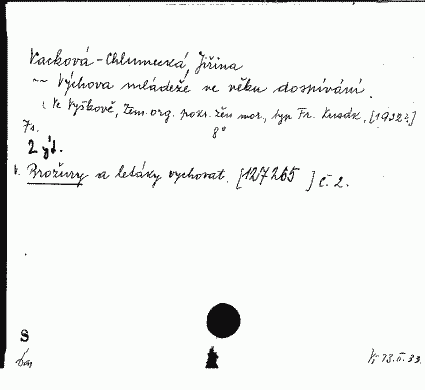 Vacková-Chlumecká, Jiřina
~ Výchova mládeže ve věku dospívání.
Ve Vyškově, Zem. org. pokr. žen mor., typ Fr. Kusák, [1932?]
7 s. 8°
2 výt.
v. Brožury a letáky vychovat. [127265] č. 2.
S